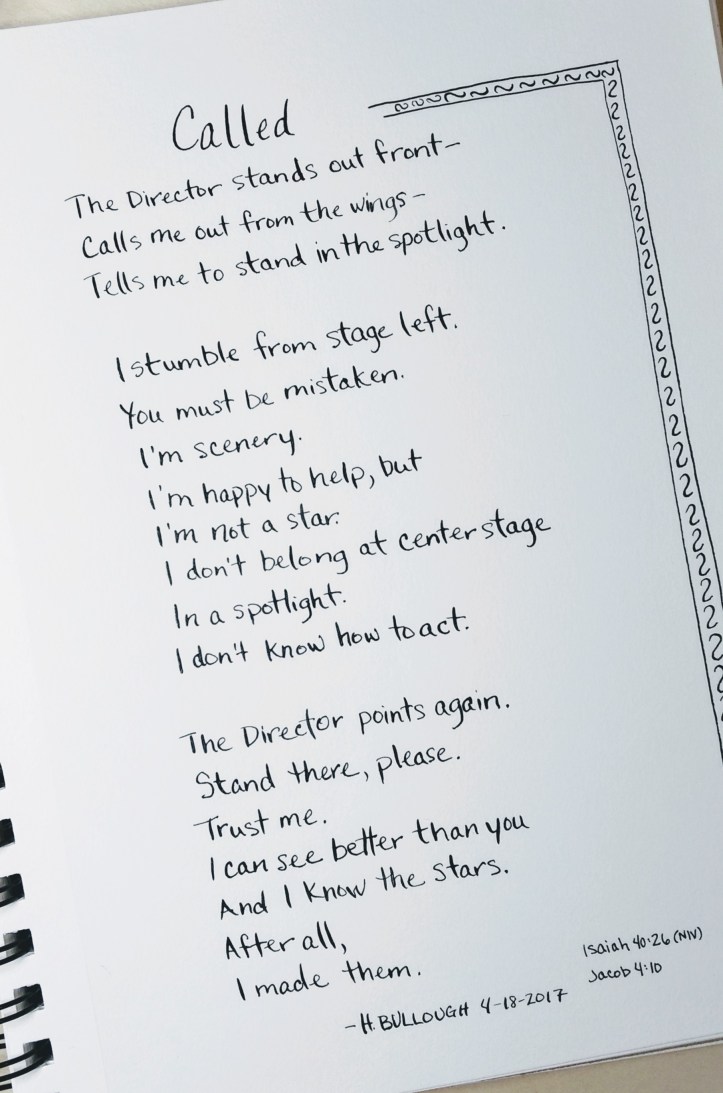 Called
The Director stands out front—
Calls me out from the wings—
Tells me to stand in the spotlight.
I stumble from stage left.
You must be mistaken.
I'm scenery.
I'm happy to help, but
I'm not a star.
I don't belong at center stage
In a spotlight.
I don't know how to act.
The Director points again.
Stand there, please.
Trust me.
I can see better than you
And I know the stars.
After all,
I made them.
Isaiah 40:26 (NIV)
Jacob 4:10
–H. BULLOUGH 4-18-2017